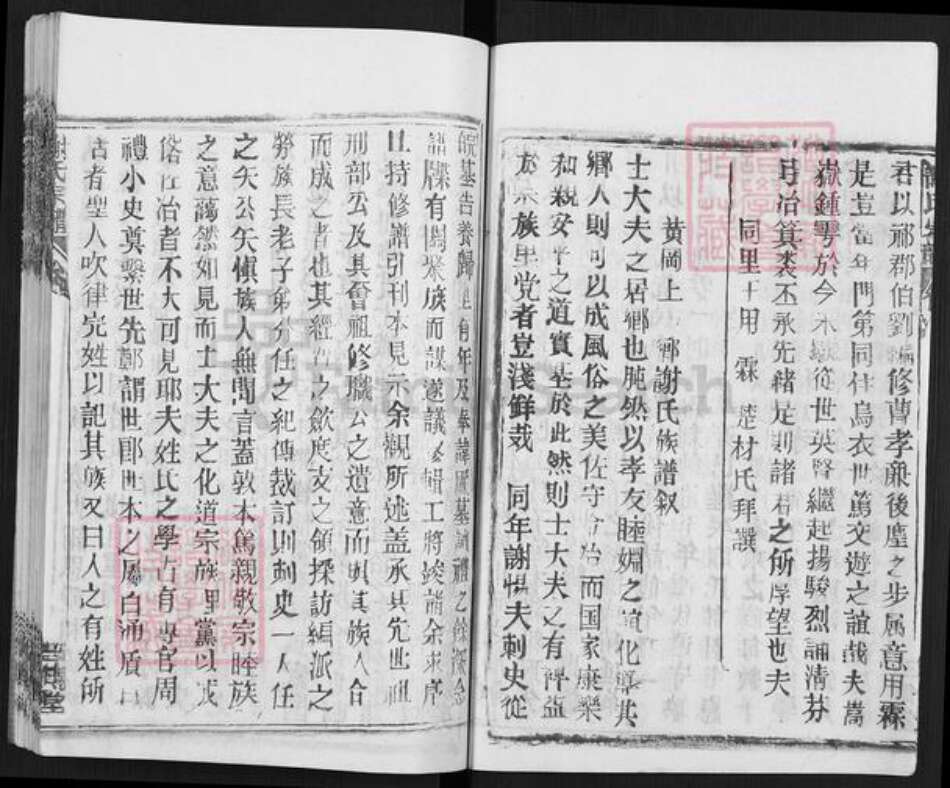 君以邴郡伯劉編修曹孝亷後塵之步属意用霖
是豈當年門第同住烏衣世篤交遊之誼哉夫嵩
嶽鍾於今從世英賢繼起揚駿烈誦清芬
弓冶箕裘丕承先緒是則諸君之所厚望也夫
同里王用霖楚材氏拜譔
黄岡上鄉謝氏族譜叙
士大夫之居鄉也肫然以孝友睦婣之道化導其
鄉人則可以成風俗之美佐守令治而国家康樂
和親安平之道實基於此然則士大夫之有裨益
於宗族里党者豈淺鮮哉 同年謝惺夫刺史從
皖基告養歸有年及奉諱廬墓讀禮之餘深念
譜牒有闕求族而謀遂議修輯工將竣請余求序
且持修譜引刊本見示余觀所述盖承其先世祖
刑部公及其曾祖修職公之遺意而與其族人合
而成之者也其經費之歛度支之領採訪編派之
勞族長老子弟分任之紀傳裁訂則刺史一人任
之矣公矣愼族人無間言蓋敦本篤親敬宗睦族
之意藹然如見而士大夫之化道宗族里黨以成
俗在冶者不大可見耶夫姓氏之學古有專官周
禮小史奠繫世先鄭謂世即世本之屬白通
古者聖人吹律定姓以記其族又曰人之有姓所
謝氏宗譜